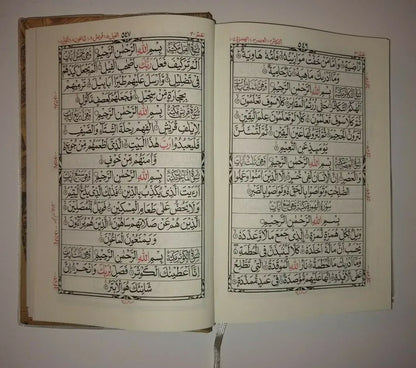 ٥٤٦
رَّاضِيَةٍ وَاَمَّا مَنْ خَفَّتْ مَوَازِيْنُهٗ فَاُمُّهٗ هَاوِيَةٌ
وَمَآ اَدْرٰىكَ مَاهِيَهْ نَارٌ حَامِيَةٌ
بِسْمِ اللهِ الرَّحْمٰنِ الرَّحِيْمِ
اَلْهٰىكُمُ التَّكَاثُرُ حَتّٰى زُرْتُمُ الْمَقَابِرَ كَلَّا سَوْفَ تَعْلَمُوْنَ
ثُمَّ كَلَّا سَوْفَ تَعْلَمُوْنَ كَلَّا لَوْ تَعْلَمُوْنَ عِلْمَ الْيَقِيْنِ
لَتَرَوُنَّ الْجَحِيْمَ ثُمَّ لَتَرَوُنَّهَا عَيْنَ الْيَقِيْنِ ثُمَّ لَتُسْئَلُنَّ
يَوْمَئِذٍ عَنِ النَّعِيْمِ
بِسْمِ اللهِ الرَّحْمٰنِ الرَّحِيْمِ
وَالْعَصْرِ اِنَّ الْاِنْسَانَ لَفِيْ خُسْرٍ اِلَّا الَّذِيْنَ اٰمَنُوْا وَعَمِلُوا
الصّٰلِحٰتِ وَتَوَاصَوْا بِالْحَقِّ وَتَوَاصَوْا بِالصَّبْرِ
بِسْمِ اللهِ الرَّحْمٰنِ الرَّحِيْمِ
وَيْلٌ لِّكُلِّ هُمَزَةٍ لُّمَزَةٍ الَّذِيْ جَمَعَ مَالًا وَّعَدَّدَهٗ
يَحْسَبُ اَنَّ مَالَهٗٓ اَخْلَدَهٗ كَلَّا لَيُنْۢبَذَنَّ فِي الْحُطَمَةِ
وَمَآ اَدْرٰىكَ مَا الْحُطَمَةُ نَارُ اللهِ الْمُوْقَدَةُ الَّتِيْ تَطَّلِعُ
عَلَى الْاَفْئِدَةِ اِنَّهَا عَلَيْهِمْ مُّؤْصَدَةٌ فِيْ عَمَدٍ مُّمَدَّدَةٍ
٥٤٧
بِسْمِ اللهِ الرَّحْمٰنِ الرَّحِيْمِ
اَلَمْ تَرَ كَيْفَ فَعَلَ رَبُّكَ بِاَصْحٰبِ الْفِيْلِ اَلَمْ يَجْعَلْ كَيْدَهُمْ
فِيْ تَضْلِيْلٍ وَّاَرْسَلَ عَلَيْهِمْ طَيْرًا اَبَابِيْلَ تَرْمِيْهِمْ
بِحِجَارَةٍ مِّنْ سِجِّيْلٍ فَجَعَلَهُمْ كَعَصْفٍ مَّاْكُوْلٍ
بِسْمِ اللهِ الرَّحْمٰنِ الرَّحِيْمِ
لِاِيْلٰفِ قُرَيْشٍ اٖلٰفِهِمْ رِحْلَةَ الشِّتَآءِ وَالصَّيْفِ
فَلْيَعْبُدُوْا رَبَّ هٰذَا الْبَيْتِ الَّذِيْٓ اَطْعَمَهُمْ مِّنْ جُوْعٍ
وَّاٰمَنَهُمْ مِّنْ خَوْفٍ
بِسْمِ اللهِ الرَّحْمٰنِ الرَّحِيْمِ
اَرَءَيْتَ الَّذِيْ يُكَذِّبُ بِالدِّيْنِ فَذٰلِكَ الَّذِيْ يَدُعُّ الْيَتِيْمَ
وَلَا يَحُضُّ عَلٰى طَعَامِ الْمِسْكِيْنِ فَوَيْلٌ لِّلْمُصَلِّيْنَ
الَّذِيْنَ هُمْ عَنْ صَلَاتِهِمْ سَاهُوْنَ الَّذِيْنَ هُمْ يُرَآءُوْنَ
وَيَمْنَعُوْنَ الْمَاعُوْنَ
بِسْمِ اللهِ الرَّحْمٰنِ الرَّحِيْمِ
اِنَّآ اَعْطَيْنٰكَ الْكَوْثَرَ فَصَلِّ لِرَبِّكَ وَانْحَرْ اِنَّ
شَانِئَكَ هُوَ الْاَبْتَرُ